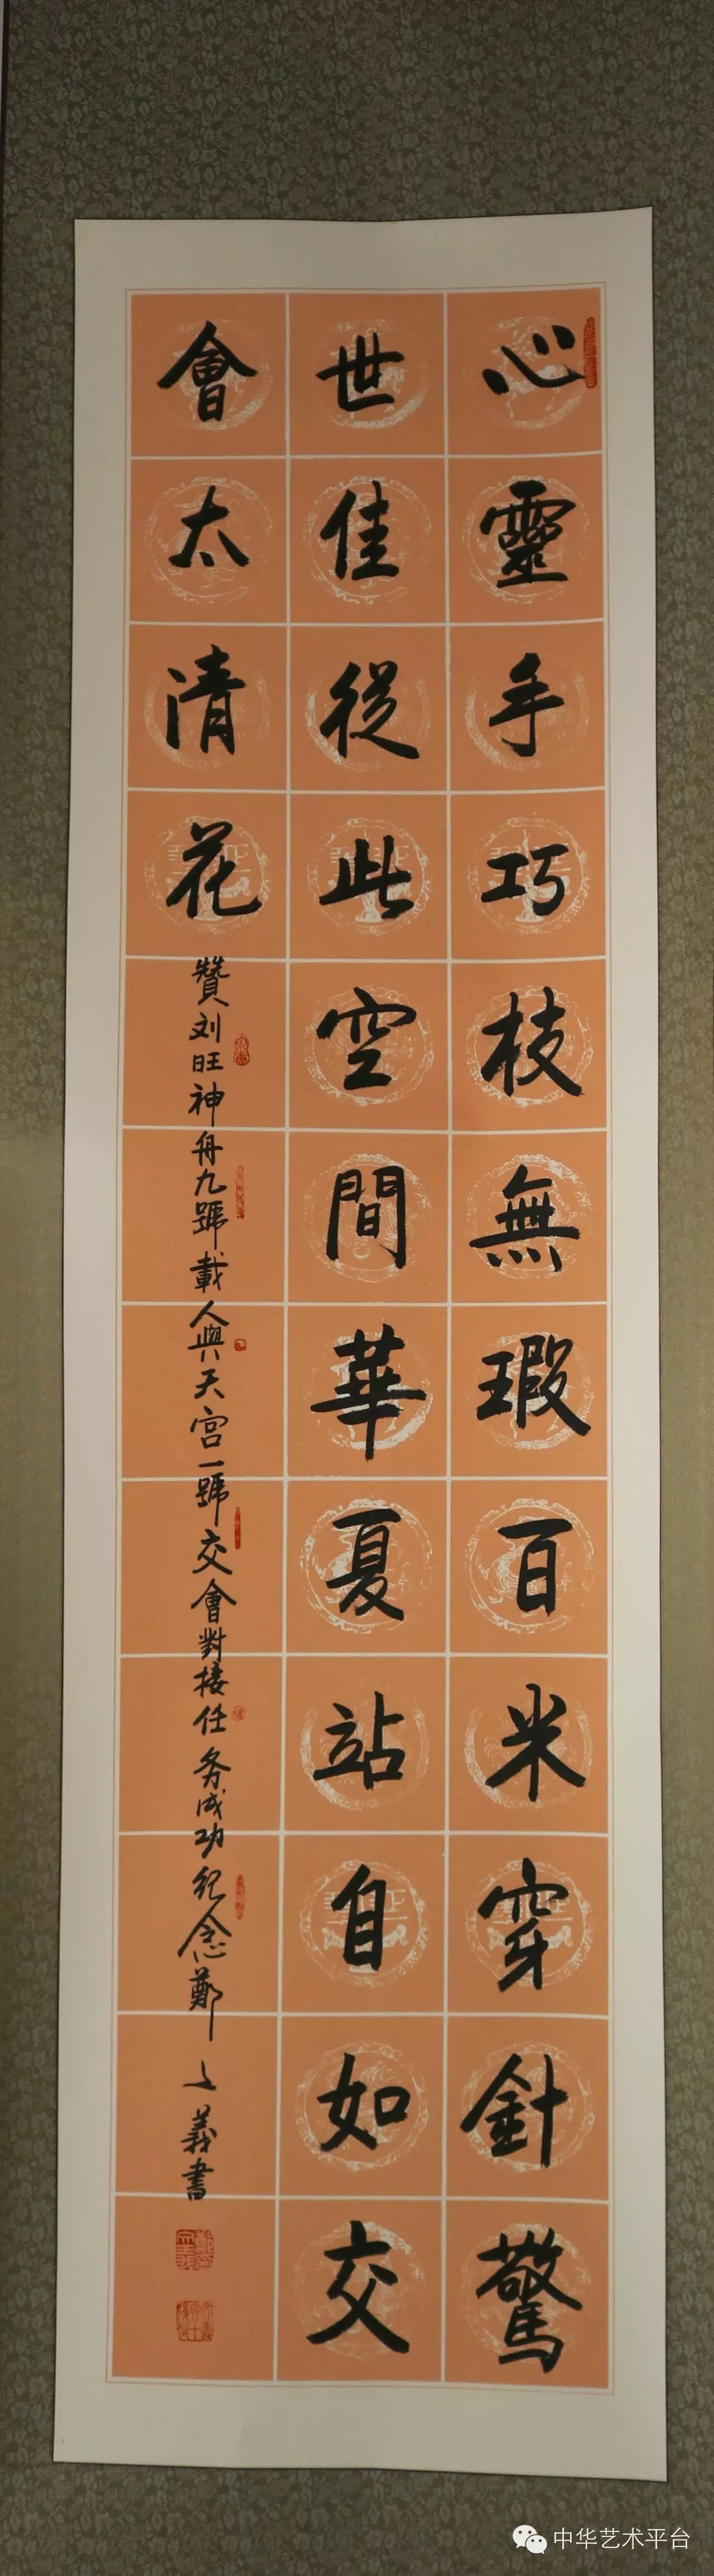 心靈手巧枝無瑕百米穿針驚
世佳從此空間華夏站自如交
會太清花
贊刘旺神舟九號載人與天宫一號交會對接任务成功纪念鄭
義書
中华艺术平台